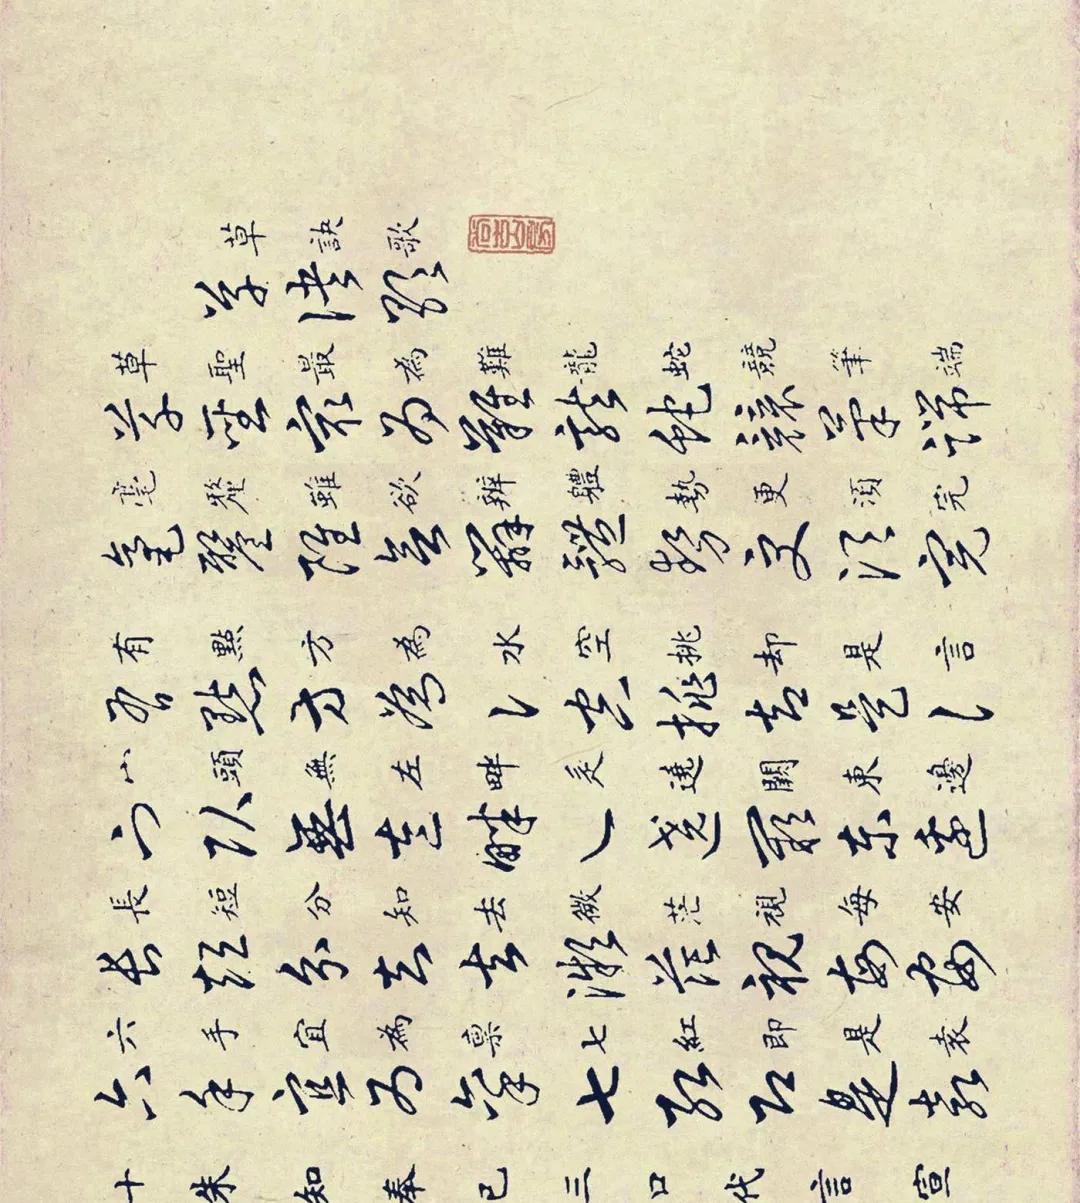 草訣歌
草聖最為難龍蛇競筆端
毫釐雖欲辨體勢更須完
有點方為水空挑却是言
宀頭無左畔辵遶闕東邊
長短分知去微茫視每安
六手宜為稟七紅即是袁
十朱知奉已三口代言宣